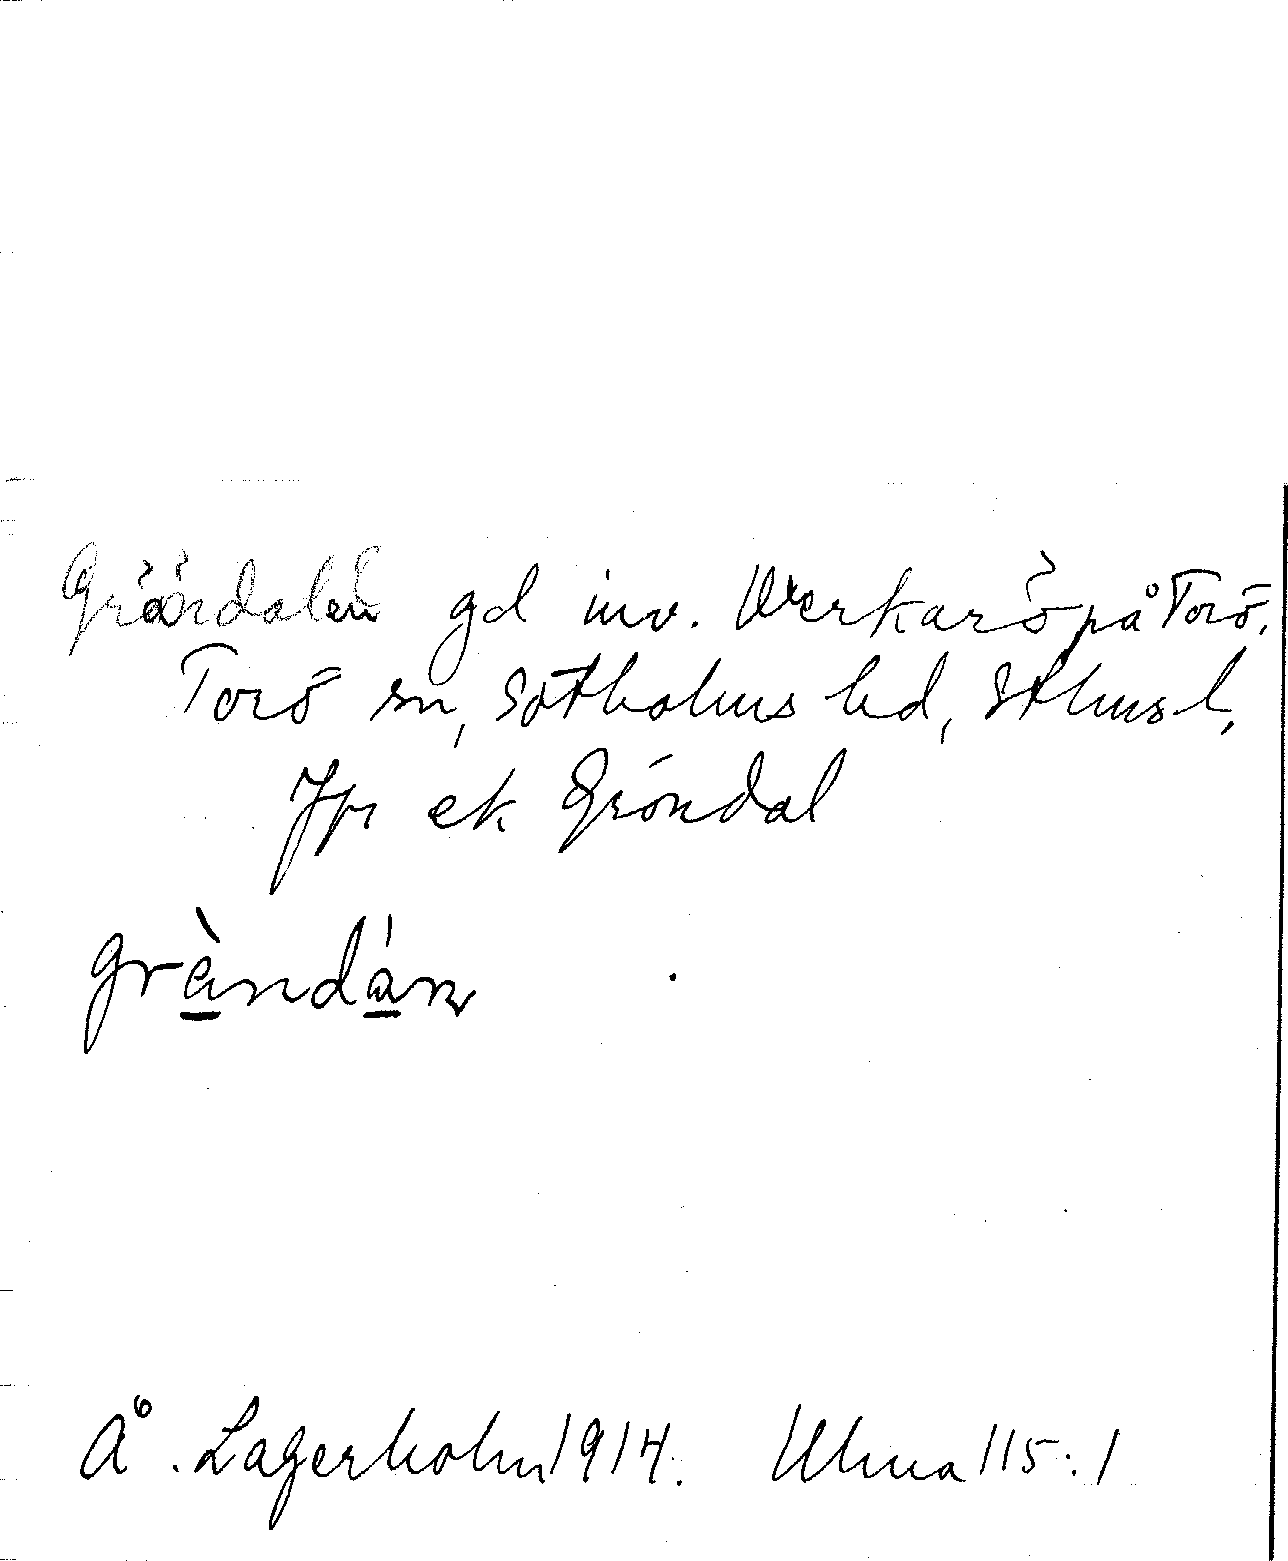 Gröndalen gd inv. Werkarö på Torö,
Torö sn, Sotholms hd, Sthms l,
Jfr ek Gröndal
gràndán
Å. Lagerholm 1914. Ulma 115:1